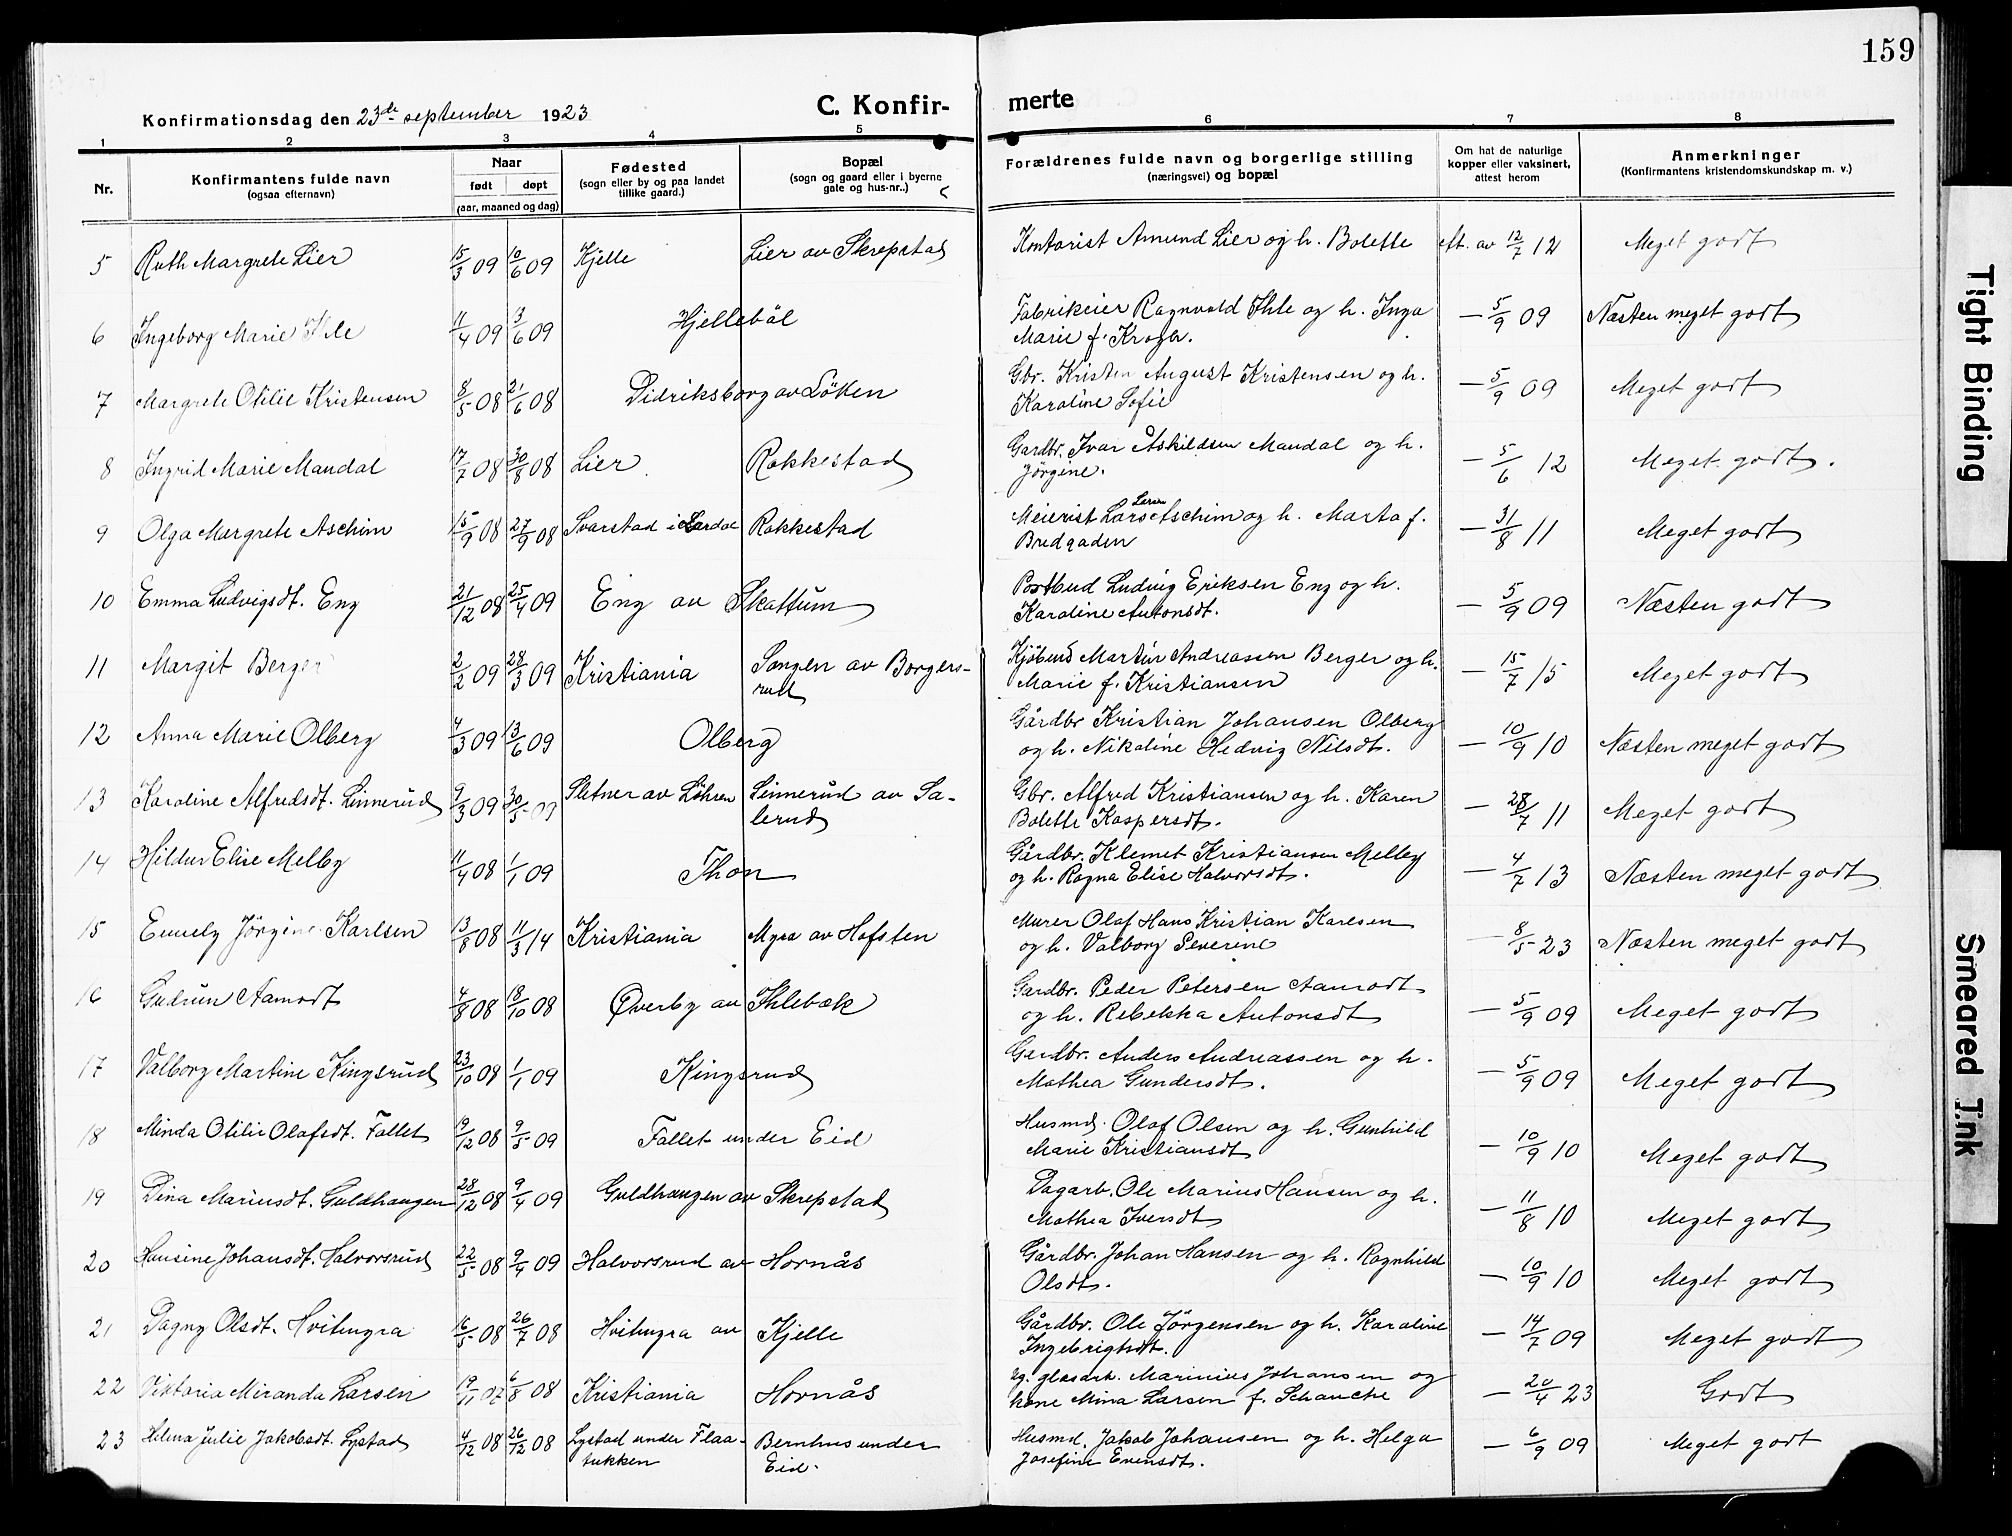 159
Konfirmationsdag den 23de september 1923
C. Konfir-
merte
1 2 3 4 5 6 7 8
Nr.
Konfirmantens fulde navn
(ogsaa efternavn)
Naar
født døpt
(aar, maaned og dag)
Fødested
(sogn eller by og paa landet
tillike gaard.)
Bopæl
(sogn og gaard eller i byerne
gate og hus-nr..)
Forældrenes fulde navn og borgerlige stilling
(næringsvei) og bopæl
Om hat de naturlige
kopper eller vaksinert,
attest herom
Anmerkninger
(Konfirmantens kristendomskundskap m. v.)
5 Ruth Margrete Lier 15/3 09 10/6 09 Kjelle Lier av Skrepstad Kontorist Amund Lier og h. Bolette eft. av 12/7 12 Meget godt
6 Ingeborg Marie Ihle 11/4 09 13/6 09 Hjelleböl Fabrikeier Ragnvald Ihle og h. Inga
Marie f. Krogh. — 5/9 09 Næsten meget godt
7 Margrete Otilie Kristensen 8/5 08 21/6 08 Didriksborg av Löken Gbr. Kristen August Kristensen og h.
Karoline Sofie — 5/9 09 Meget godt
8 Ingrid Marie Mandal 17/7 08 30/8 08 Lier Rakkestad Gardbr. Ivar Åskildsen Mandal og h.
Jörgine. — 5/6 12 Meget godt.
9 Olga Margrete Aschim 15/9 08 27/9 08 Svarstad i Lardal Rakkestad Meierist Lars Larsen Aschim og h. Marta f.
Bredgaden — 31/8 11 Meget godt
10 Emma Ludvigsdt. Eng 21/12 08 25/4 09 Eng av Skattum Postbud Ludvig Eriksen Eng og h.
Karoline Antonsdt. — 5/9 09 Næsten godt
11 Margit Berger 2/2 09 28/3 09 Kristiania Songen av Borgers-
rud Kjöbmd Martin Andreassen Berger og h.
Marie f. Kristiansen — 15/7 15 Meget godt
12 Anna Marie Olberg 4/3 09 13/6 09 Olberg Gårdbr Kristian Johansen Olberg
og h. Nikoline Hedvig Nilsdt. — 10/9 10 Næsten meget godt
13 Karoline Alfredsdt. Linnerud 9/3 09 30/5 09 Sletner av Löhren Linnerud av Sa-
lerud Gbr. Alfred Kristiansen og h. Karen
Bolette Kaspersdt. — 28/7 11 Meget godt
14 Hildur Elise Melby 11/4 08 1/1 09 Thon Gårdbr. Klemet Kristiansen Melby
og h. Ragna Elise Halvorsdt. — 4/7 13 Næsten meget godt
15 Emely Jörgine Karlsen 13/8 08 11/3 14 Kristiania Myra av Hofsten Murer Olaf Hans Kristian Karlsen
og h. Valborg Severine — 8/5 23 Næsten meget godt
16 Gudrun Aamodt 4/8 08 18/10 08 Øverby av Ihlebæk Gardbr. Peder Petersen Aamodt
og h. Rebekka Antonsdt — 5/9 09 Meget godt
17 Valborg Martine Kingsrud 23/10 08 1/1 09 Kingsrud Gardbr. Anders Andreassen og h.
Mathea Gundersdt. — 5/9 09 Meget godt
18 Minda Otilie Olafsdt. Fallet 19/12 08 9/5 09 Fallet under Eid Husmd. Olaf Olsen og h. Gunhild
Marie Kristiansdt — 10/9 10 Meget godt
19 Dina Mariusdt. Guldhaugen 28/12 08 9/4 09 Guldhaugen av Skrepstad Dagarb. Ole Marius Hansen og h.
Mathea Iversdt — 11/8 10 Meget godt
20 Hansine Johansdt. Halvorsrud 22/5 08 9/4 09 Halvorsrud av Hornås Gårdbr. Johan Hansen og h. Ragnhild
Olsdt. — 10/9 10 Meget godt
21 Dagny Olsdt. Hvitmyra 16/5 08 26/7 08 Hvitmyra av Kjelle Gårdbr. Ole Jörgensen og h. Karoline
Ingebrigtsdt. — 14/7 09 Meget godt
22 Viktoria Miranda Larsen 19/11 07 6/8 08 Kristiania Hornås Marinius Johansen og
kone Mina Larsen f. Schancke — 20/4 23 Godt
23 Hilma Julie Jakobsdt. Lystad 4/12 08 26/12 08 Lystad under Flaa-
tukken Bernhus under
Eid. Husmd. Jakob Johansen og h. Helga
Josefine Evensdt. — 6/9 09 Meget godt
Tight Binding
Smeared Ink